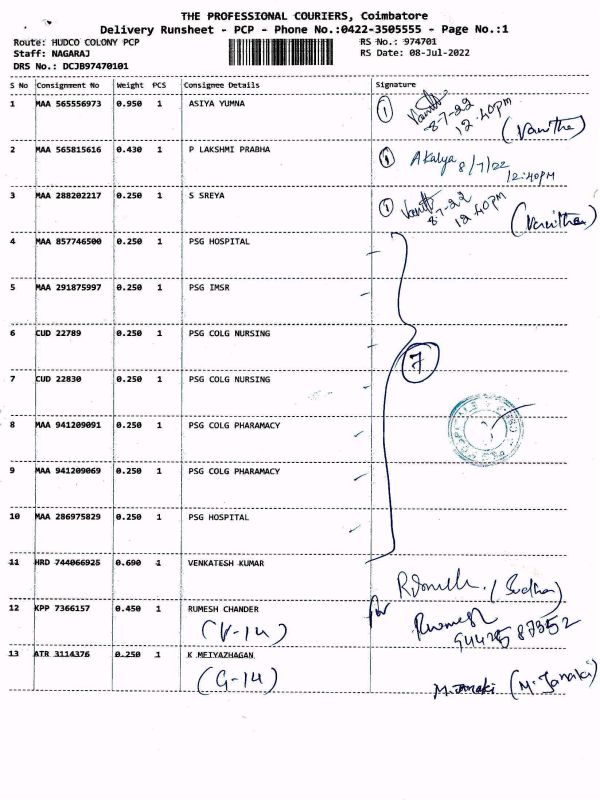 THE PROFESSIONAL COURIERS, Coimbatore
Delivery Runsheet - PCP - Phone No.:0422-3505555 - Page No.:1
Route: HUDCO COLONY PCP RS No.: 974701
Staff: NAGARAJ RS Date: 08-Jul-2022
DRS No.: DCJB97470101
S No Consignment No Weight PCS Consignee Details Signature
1 MAA 565556973 0.950 1 ASIYA YUMNA 1 8-7-22 12.40pm (Vanitha)
2 MAA 565815616 0.430 1 P LAKSHMI PRABHA 1 Akalya 8/7/22 12:40PM
3 MAA 288202217 0.250 1 S SREYA 1 8-7-22 12.40pm (Vanitha)
4 MAA 857746500 0.250 1 PSG HOSPITAL
5 MAA 291875997 0.250 1 PSG IMSR
6 CUD 22789 0.250 1 PSG COLG NURSING
7
7 CUD 22830 0.250 1 PSG COLG NURSING
8 MAA 941209091 0.250 1 PSG COLG PHARAMACY
9 MAA 941209069 0.250 1 PSG COLG PHARAMACY
10 MAA 286975829 0.250 1 PSG HOSPITAL
11 HRD 744066925 0.690 1 VENKATESH KUMAR
(Sudha)
12 KPP 7366157 0.450 1 RUMESH CHANDER for
(V-14)
13 ATR 3114376 0.250 1 K METYAZHAGAN
(G-14) M. Janaki (M. Janaki)